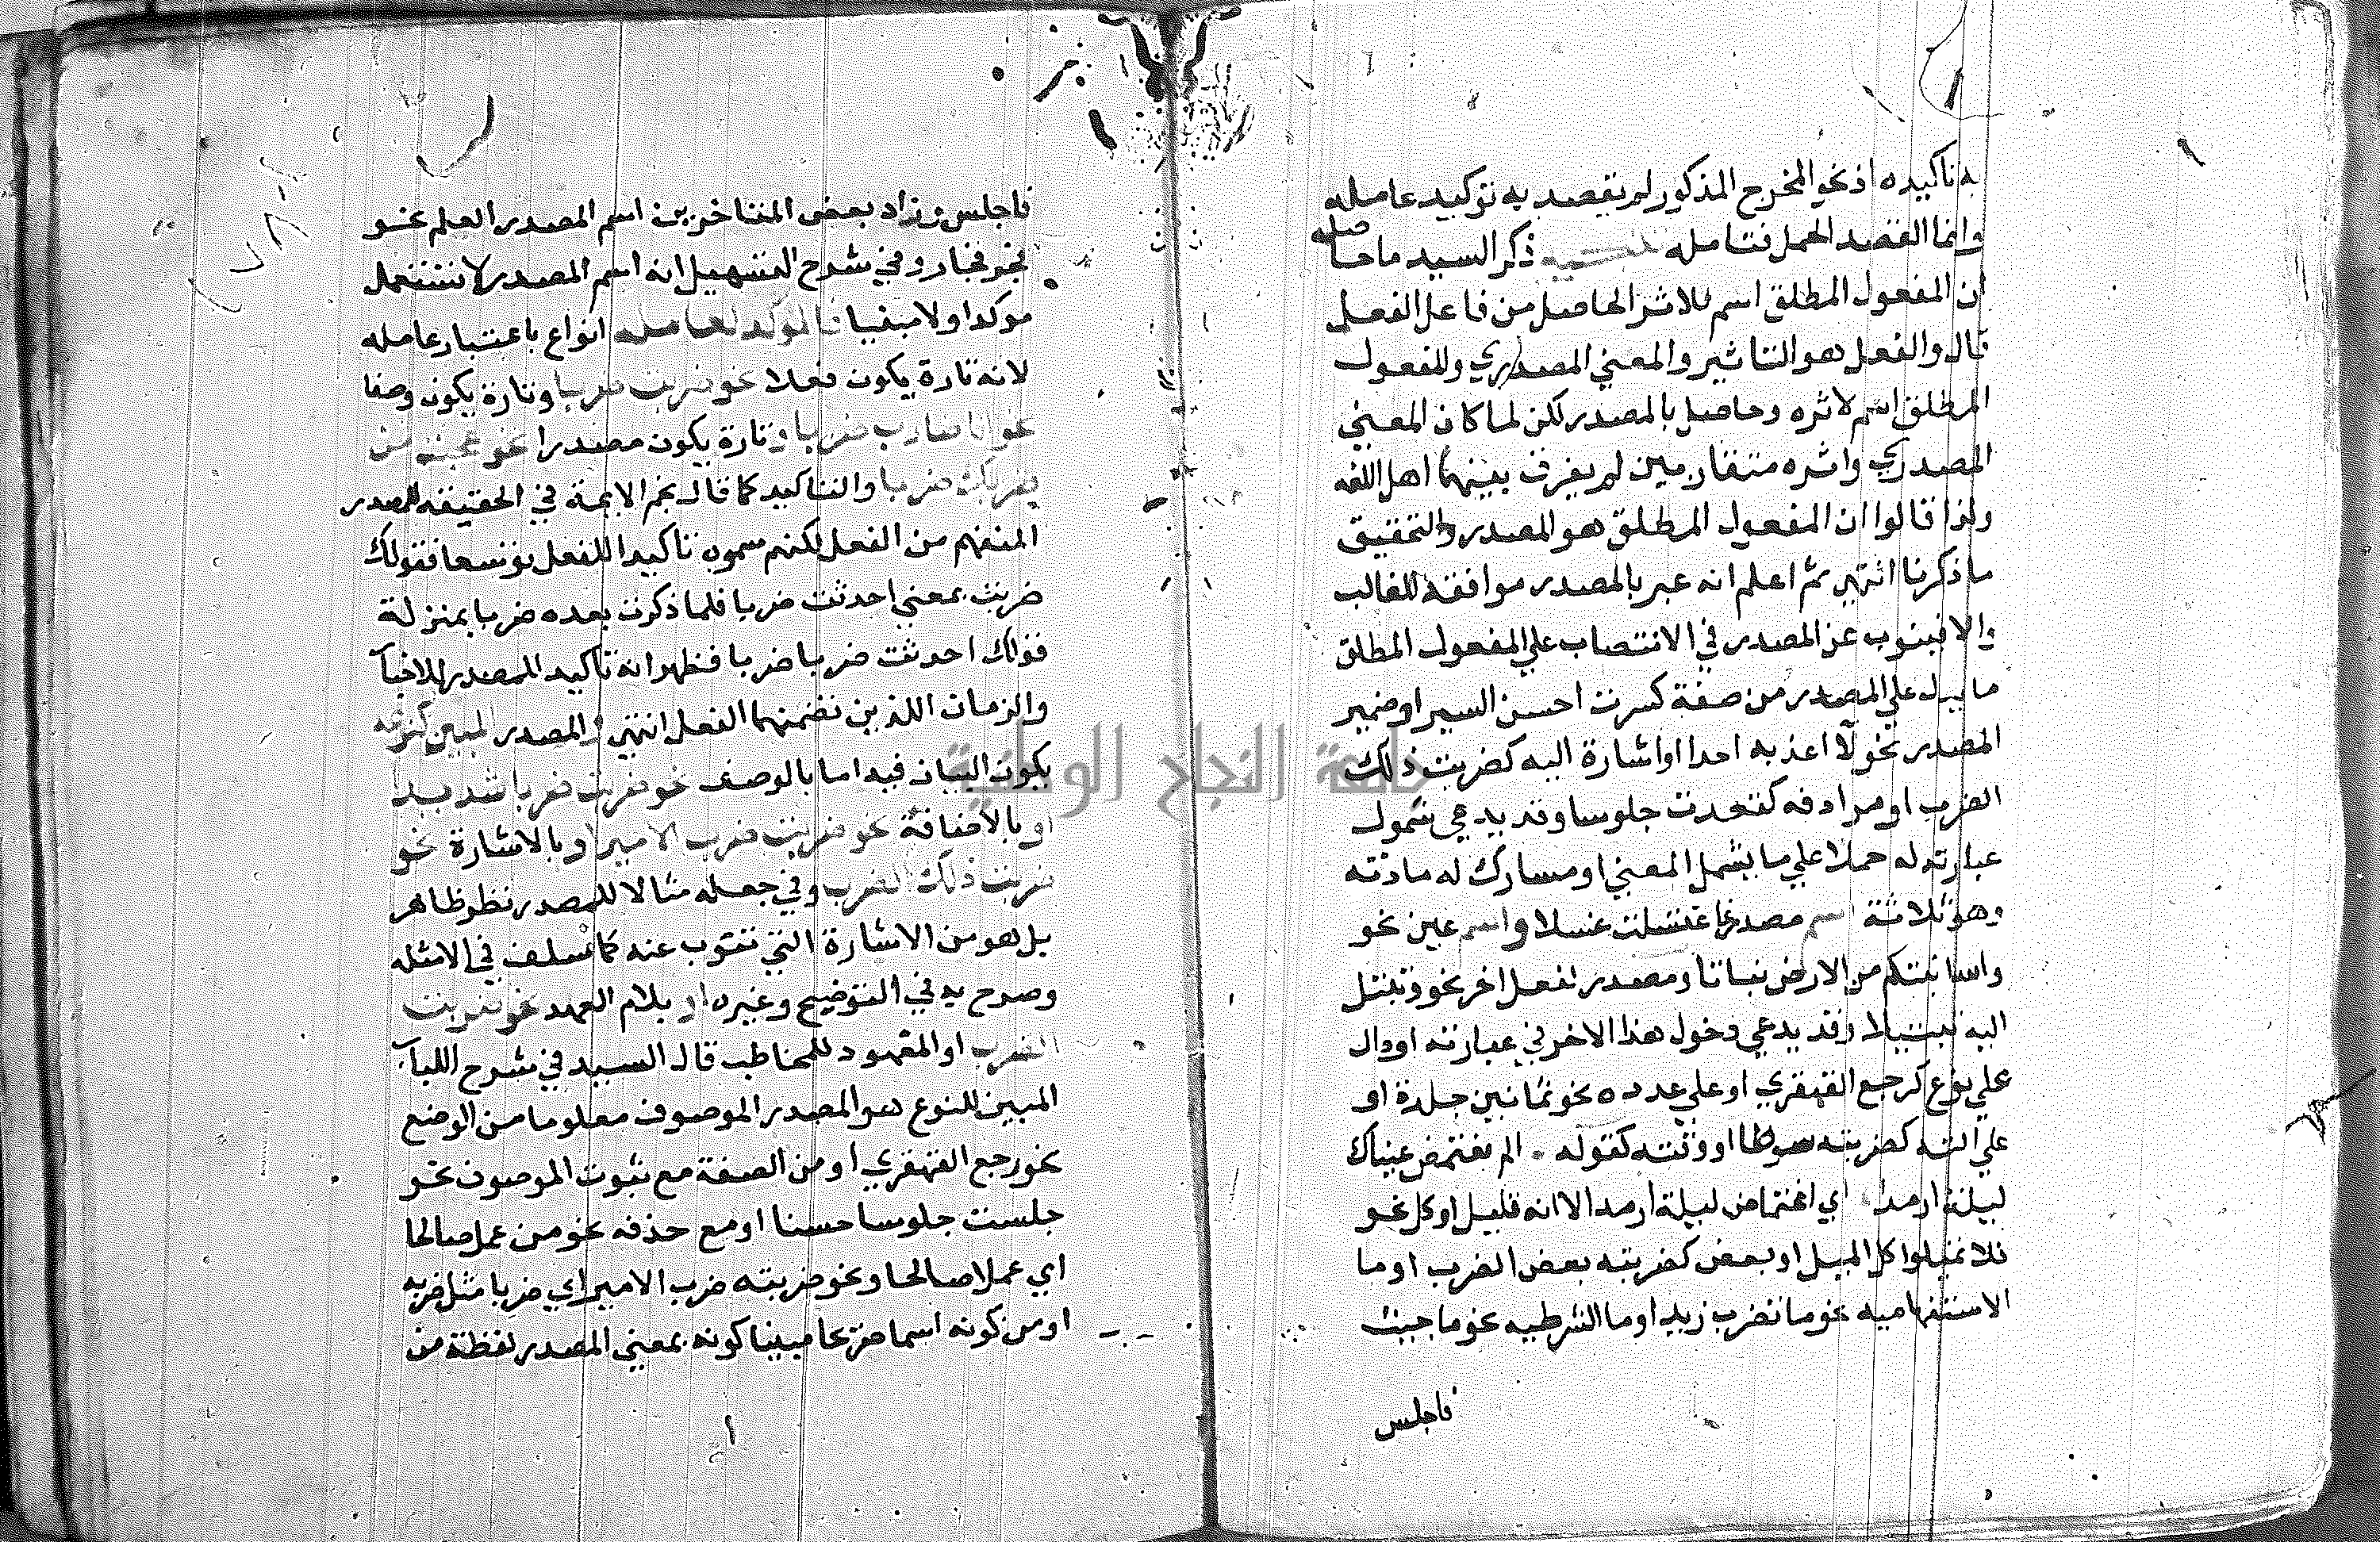 به تاكيده اذ نحو المخرج المذكور لم يقصد به توكيد عامله
وانما القصد الحمل فتامله ذكر السيد ما حاصله
ان المفعول المطلق اسم للاثر الحاصل من فاعل الفعل
قال والفعل هو التاثير والمعني المصدري والمفعول
المطلق اسم لاثره وحاصل بالمصدر لكن لما كان المعني
المصدري واثره متقاربين لم يفرق بينهما اهل اللغه
ولذا قالوا ان المفعول المطلق هو المصدر والتحقيق
ما ذكرنا انتهي ثم اعلم انه عبر بالمصدر موافقة للغالب
والا فينوب عن المصدر في الانتصاب علي المفعول المطلق
ما يدل علي المصدر من صفة كسرت احسن السير او ضمير
المصدر نحو لا اعذبه احدا او اشارة اليه كضربت ذلك
الضرب او مرادفه كقعدت جلوسا وقد يدعي شمول
عبارته له حملا علي ما يشمل المعني او مشارك له مادته
وهو ثلاثة اسم مصدر نحو اغتسلت غسلا واسم عين نحو
والله انبتكم من الارض نباتا ومصدر لفعل اخر نحو وتبتل
اليه تبتيلا وقد يدعي دخول هذا الاخر في عبارته او دال
علي نوع كرجع القهقري او علي عدده نحو ثمانين جلدة او
علي الته كضربته سوطا او وقته كقوله الم تغتمض عيناك
ليلة ارمدا اي اغتماض ليلة ارمد الا انه قليل او كل نحو
فلا تميلوا كل الميل او بعض كضربته بعض الضرب او ما
الاستفهاميه نحو ما تضرب زيد او ما الشرطيه نحو ما جيت
فاجلس
فاجلس وزاد بعض المتاخرين اسم المصدر العلم نحو
فجر فجار وفي شرح التسهيل انه اسم المصدر لا يستعمل
موكدا ولا مبينا فالموكد لعامله انواع باعتبار عامله
لانه تارة يكون فعلا نحو ضربت ضربا وتارة يكون وصفا
نحو انا ضارب ضربا وتارة يكون مصدرا نحو عجبت من
ضربك ضربا والتاكيد كما قال نجم الايمة في الحقيقه للمصدر
المنفهم من الفعل لكنهم سموه تاكيدا للفعل توسعا فقولك
ضربت بمعني احدثت ضربا فلما ذكرت بعده ضربا بمنزلة
قولك احدثت ضربا ضربا فظهر انه تاكيد للمصدر لا للاخبار
والزمان اللذين تضمنهما الفعل انتهي والمصدر المبين لنوعه
يكون البيان فيه اما بالوصف نحو ضربت ضربا شديدا
او بالاضافة نحو ضربت ضرب الامير او بالاشارة نحو
ضربت ذلك الضرب وفي جعله مثالا للمصدر نظر ظاهر
بل هو من الاشارة التي تنوب عنه كما سلف في الامثله
وصرح به في التوضيح وغيره او بلام العهد نحو ضربت
الضرب او المعهود للمخاطب قال السيد في شرح اللباب
المبين للنوع هو المصدر الموصوف معلوما من الوضع
نحو رجع القهقري او من الصفة مع ثبوت الموصوف نحو
جلست جلوسا حسنا او مع حذفه نحو من عمل صالحا
اي عملا صالحا ونحو ضربته ضرب الامير اي ضربا مثل ضربه
او من كونه اسما صريحا مبينا كونه بمعني المصدر لفظة من
جامعة النجاح الوطنية